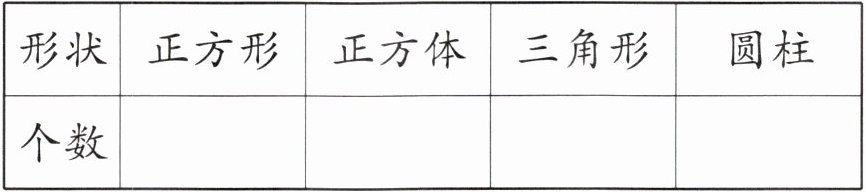 形状 正方形 正方体 三角形 圆柱
个数